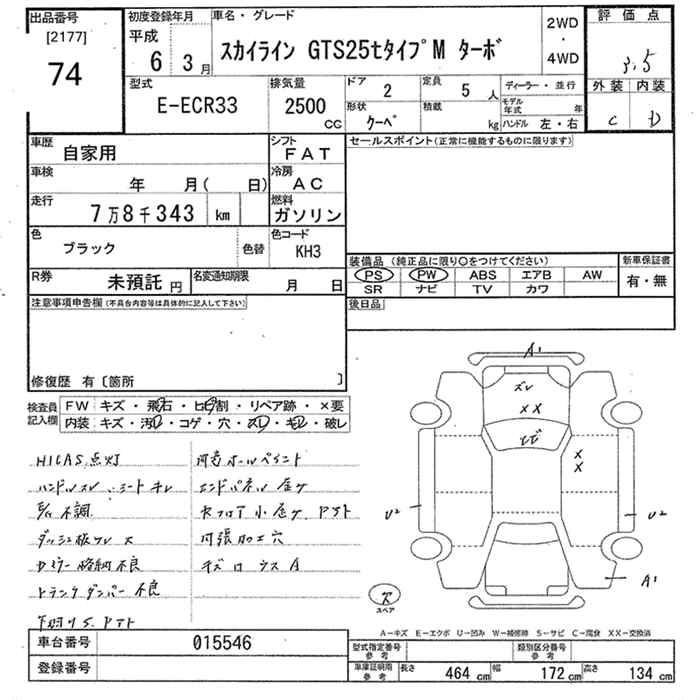 出品番号
[2177]
74
初度登録年月
平成
6 3月
車名・グレード
スカイライン GTS25tタイプM ターボ
2WD
・
4WD
評価点
3.5
外装 内装
C D
型式
E-ECR33
排気量
2500
CC
ドア
2
定員
5 人
形状
クーペ
積載
kg
ディーラー・並行
モデル年式 年
ハンドル 左・右
車歴
自家用
シフト
FAT
車検
年 月( 日)
冷房
AC
走行
7万8千343 km
燃料
ガソリン
色
ブラック
色替
色コード
KH3
R券
未預託 円
名変通知期限
月 日
セールスポイント(正常に機能するものに限ります)
装備品 (純正品に限り○をつけてください)
PS PW ABS エアB AW
SR ナビ TV カワ
新車保証書
有・無
後日品
注意事項申告欄(不具合内容等は具体的に記入して下さい)
修復歴 有〔箇所 〕
検査員記入欄
FW キズ・飛石・ヒビ割・リペア跡・×要
内装 キズ・汚レ・コゲ・穴・スレ・キレ・破レ
HICAS点灯
ハンドルスレ シートキレ
不調
ダッシュ板
不良
トランクダンパー不良
エンドパネル
アト
穴
A1
ズレ
XX
ヒビ
X
X
U2
U2
A1
スペア
A-キズ E-エクボ U-凹み W-補修跡 S-サビ C-腐食 XX-交換済
車台番号
015546
登録番号
型式指定番号
参考
類別区分番号
参考
車庫証明用
参考
長さ 464 cm 幅 172 cm 高さ 134 cm